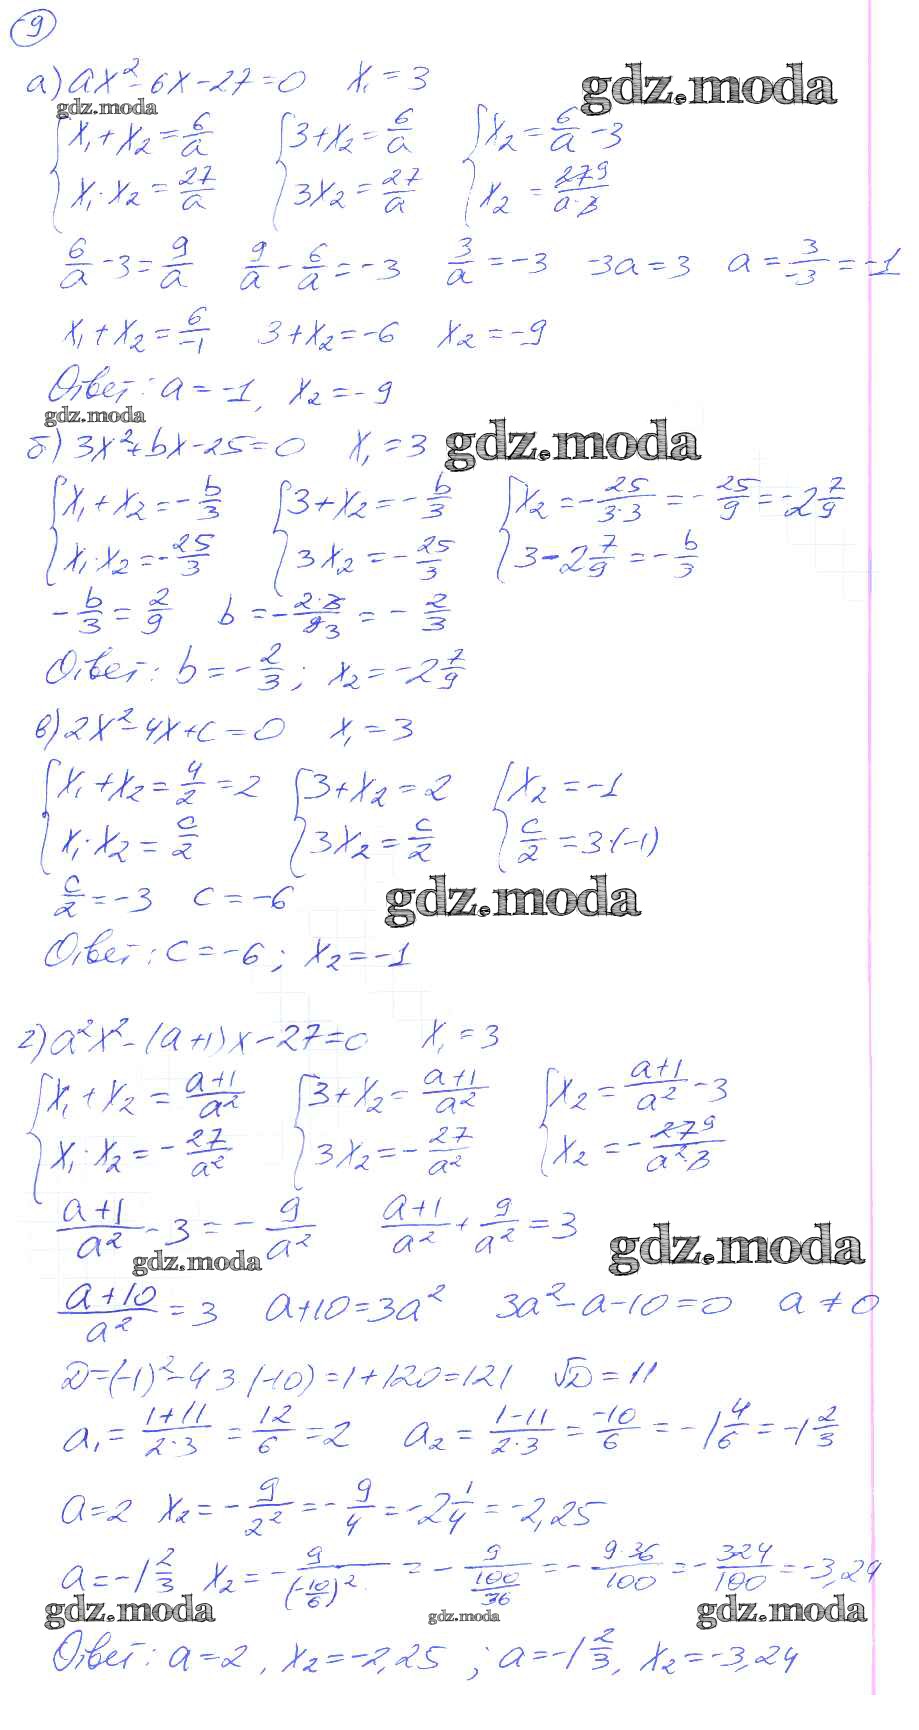 9
а) ax² - 6x - 27 = 0   x₁ = 3
gdz.moda
gdz.moda
{ x₁ + x₂ = 6/a   { 3 + x₂ = 6/a   { x₂ = 6/a - 3
{ x₁·x₂ = 27/a   { 3x₂ = 27/a   { x₂ = 27 9/a·3
6/a - 3 = 9/a   9/a - 6/a = -3   3/a = -3   -3a = 3   a = 3/-3 = -1
x₁ + x₂ = 6/-1   3 + x₂ = -6   x₂ = -9
Ответ: a = -1, x₂ = -9
gdz.moda
б) 3x² + bx - 25 = 0   x₁ = 3
gdz.moda
{ x₁ + x₂ = -b/3   { 3 + x₂ = -b/3   { x₂ = -25/3·3 = -25/9 = -2 7/9
{ x₁·x₂ = -25/3   { 3x₂ = -25/3   { 3 - 2 7/9 = -b/3
-b/3 = 2/9   b = -2·3/9 3 = -2/3
Ответ: b = -2/3; x₂ = -2 7/9
в) 2x² - 4x + c = 0   x₁ = 3
{ x₁ + x₂ = 4/2 = 2   { 3 + x₂ = 2   { x₂ = -1
{ x₁·x₂ = c/2   { 3x₂ = c/2   { c/2 = 3·(-1)
c/2 = -3   c = -6
gdz.moda
Ответ: c = -6; x₂ = -1
г) a²x² - (a+1)x - 27 = 0   x₁ = 3
{ x₁ + x₂ = a+1/a²   { 3 + x₂ = a+1/a²   { x₂ = a+1/a² - 3
{ x₁·x₂ = -27/a²   { 3x₂ = -27/a²   { x₂ = -27 9/a²·3
a+1/a² - 3 = -9/a²   a+1/a² + 9/a² = 3
gdz.moda
gdz.moda
a+10/a² = 3   a+10 = 3a²   3a² - a - 10 = 0   a ≠ 0
D = (-1)² - 4 3 (-10) = 1 + 120 = 121   √D = 11
a₁ = 1+11/2·3 = 12/6 = 2   a₂ = 1-11/2·3 = -10/6 = -1 4/6 = -1 2/3
a = 2   x₂ = -9/2² = -9/4 = -2 1/4 = -2,25
a = -1 2/3   x₂ = -9/(-10/6)² = -9/100/36 = -9·36/100 = -324/100 = -3,24
gdz.moda
gdz.moda
gdz.moda
Ответ: a = 2, x₂ = -2,25; a = -1 2/3, x₂ = -3,24